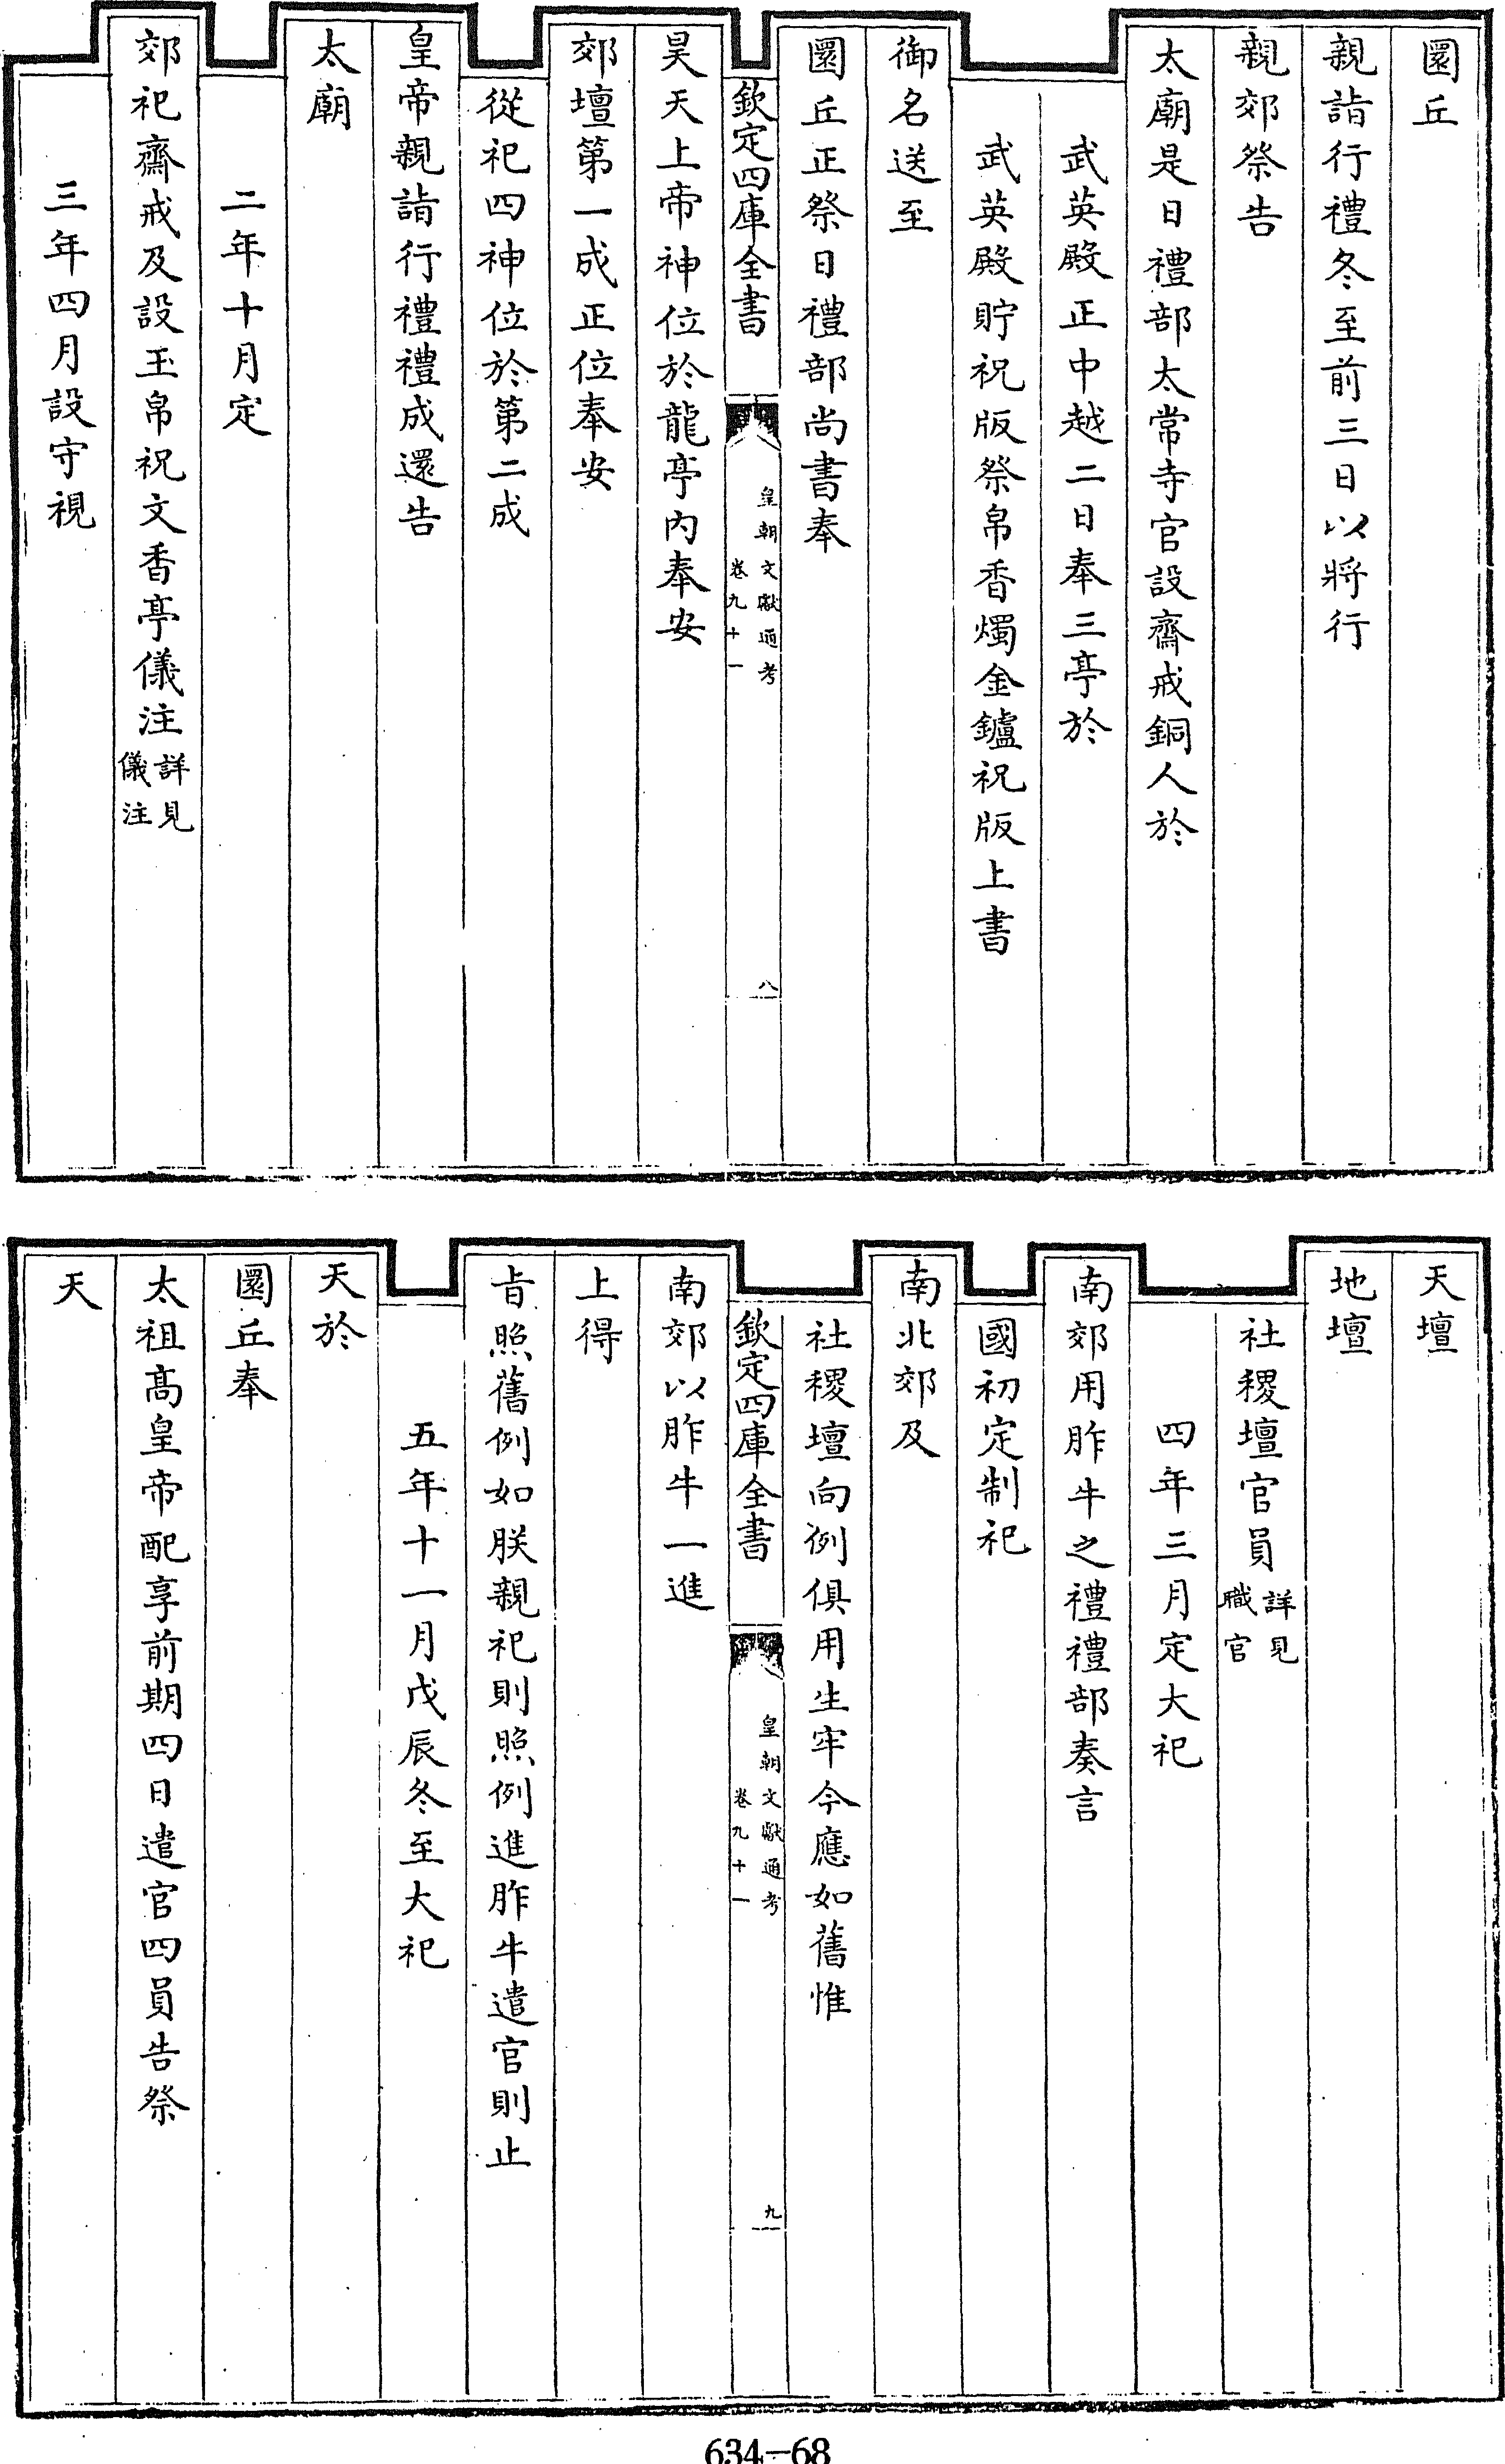 圜丘
親詣行禮冬至前三日以將行
親郊祭告
太廟是日禮部太常寺官設齋戒銅人於
武英殿正中越二日奉三亭於
武英殿貯祝版祭帛香燭金鑪祝版上書
御名送至
圜丘正祭日禮部尚書奉
欽定四庫全書
皇朝文獻通考
卷九十一
八
昊天上帝神位於龍亭内奉安
郊壇第一成正位奉安
從祀四神位於第二成
皇帝親詣行禮禮成還告
太廟
二年十月定
郊祀齋戒及設玉帛祝文香亭儀注詳見
儀注
三年四月設守視
天壇
地壇
社稷壇官員詳見
職官
四年三月定大祀
南郊用胙牛之禮禮部奏言
國初定制祀
南北郊及
社稷壇向例俱用生牢今應如舊惟
欽定四庫全書
皇朝文獻通考
卷九十一
九
南郊以胙牛一進
上得
旨照舊例如朕親祀則照例進胙牛遣官則止
五年十一月戊辰冬至大祀
天於
圜丘奉
太祖高皇帝配享前期四日遣官四員告祭
天
634-68